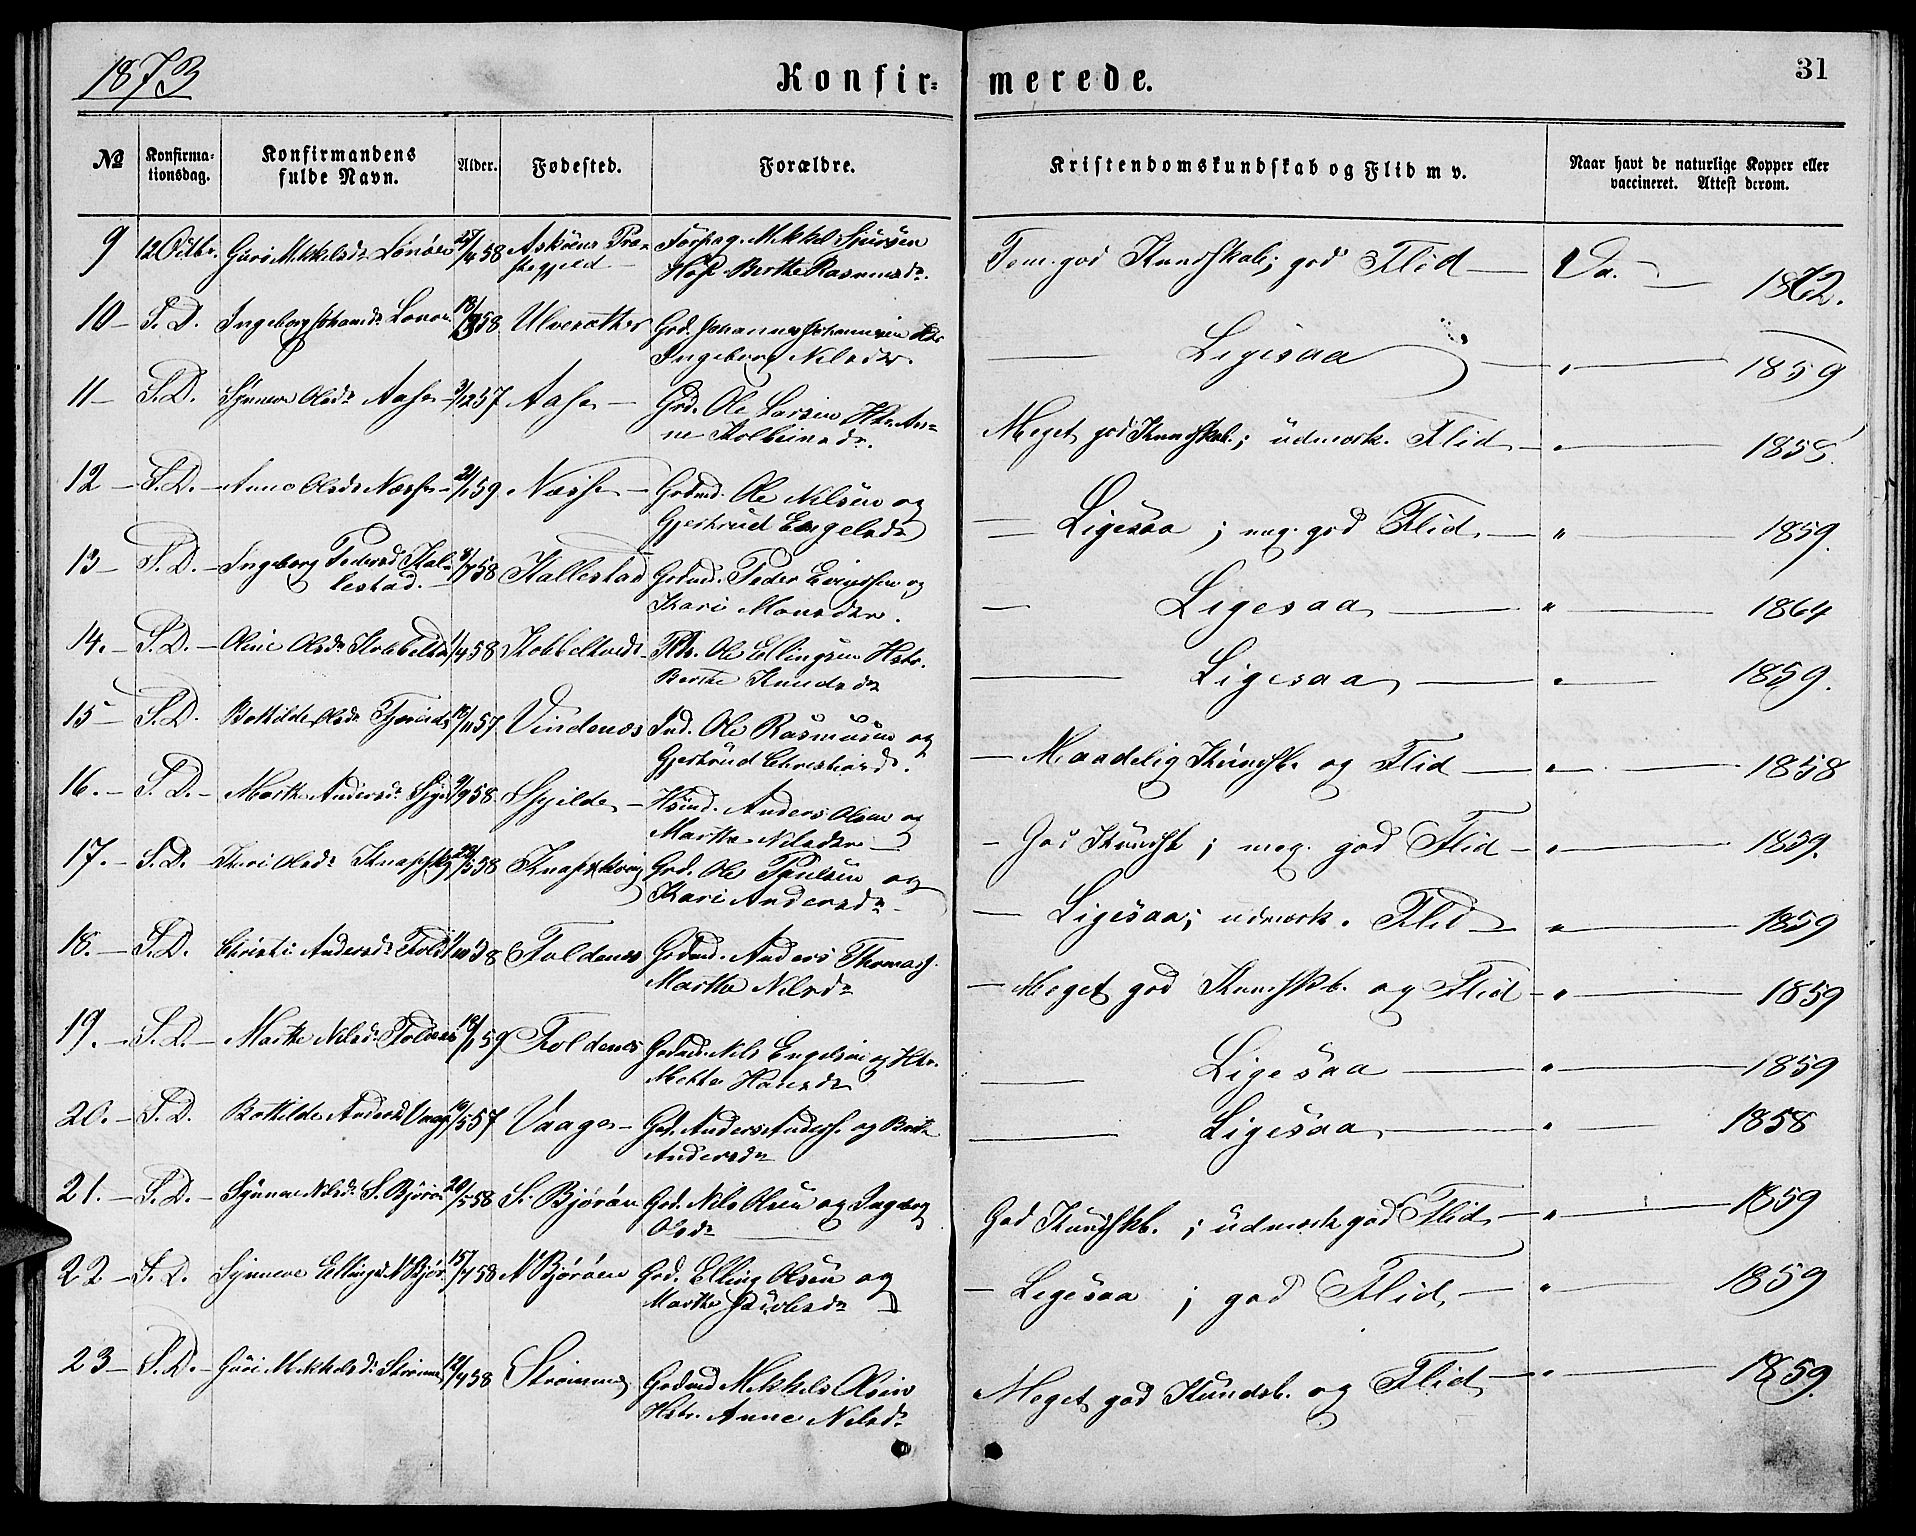 1873
Konfir-
merede.
31
No
Konfirma-
tionsdag.
Konfirmandens
fulde Navn.
Alder.
Fødested.
Forældre.
Kristendomskundskab og Flid m v.
Naar havt de naturlige Kopper eller
vaccineret. Attest derom.
9 12 Octbr. Guri Mikkelsdr 4/58 Askøens Præ-
stegjeld Mikkel Sjursen
Berthe Rasmusdr.
Tem. god Kundskab; god Flid — Va. — 1862.
10 — S. D. Ingeborg 58 Johannes Johannesen
Ingeborg Nilsdr.
— Ligesaa — " — 1859
11 — S. D. Synneve Olsdr Aase 3/12 57 Aase — Grd. Ole Larsen Hstr. An-
ne
Meget god Kundskab; udmærk. Flid — " — 1858.
12 — S. D. — Anna Olsdr Næsse — 21/1 59 Næsse — Grdmd. Ole Nilsen og
Gjertrud Engelsdr
— Ligesaa; meg. god Flid — " — 1859.
13 — S. D. — Ingeborg Pedersd Hal-
lestad. — 8/7 58 Hallestad Grdmd. Peder og
Kari Monsdr.
— Ligesaa — " — 1864
14. — S. D. — Oline Olsdr 4 58 Ole Ellingsen Hstr.
Berthe Knudsdr
— Ligesaa — " — 1859.
15 S. D. Bothilde Olsdr 11 57 Vindenæs Ind. Ole Rasmusen og
Gjertrud
— Maadelig Kundsk. og Flid — " — 1858
16. — S. D. — Marthe Andersdr 9/9 58 — Husmd. Anders Olsen og
Marthe Nilsdr —
— God Kundsk; meg. god Flid — " — 1859.
17. — S. D. — Olsdr 58 Grd. Ole Paulsen og
Kari Andersdr
— Ligesaa; udmærk. Flid — " — 1859
18. — S. D. Christi Andersdr 10 58 Foldenes Grdmd. Anders Thomas.
Marthe Nilsdr
— Meget god Kundskb. og Flid — " — 1859
19. — S. D. — Marthe Nilsdr Foldnes 18/1 59 Foldenes Grdmd. Nils Engelsen og Hstr.
Mette Hansdr
— Ligesaa — " — 1859
20. — S. D. Bothilde Andersd Vaage 5 57 Vaage — Anders Anderss. og
Andersdr
— Ligesaa — " — 1858
21. — S. D. — Synneve Nilsdr S. Bjørøen 20/5 58 S. Bjørøen Grd. Nils Olsen og Ingeborg
Olsdr
God Kundskb.; udmærk god Flid — " — 1859
22 — S. D. Synneve Ellingsd N Bjør. 15/7 58 N Bjørøen Grd. Elling Olsen og
Marthe Jacobsdr
— Ligesaa; god Flid — " — 1859
23 — S. D. — Guri Mikkelsdr Strømme 12/4 58 Strømme Grdmd Mikkel Olsen
Hstr. Anne Nilsdr
Meget god Kundsk. og Flid — " — 1859.